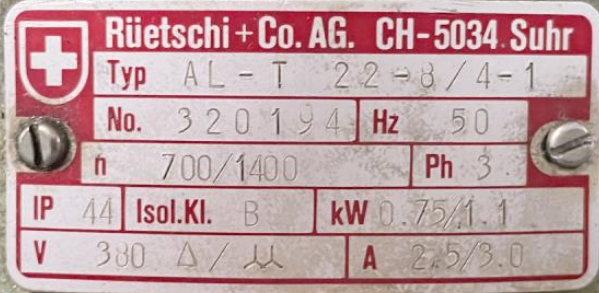 Rüetschi + Co. AG. CH-5034 Suhr
Typ AL-T 22-8/4-1
No. 320194 Hz 50
n 700/1400 Ph 3
IP 44 Isol.Kl. B kW 0.75/1.1
V 380 Δ / ⅄⅄ A 2.5/3.0